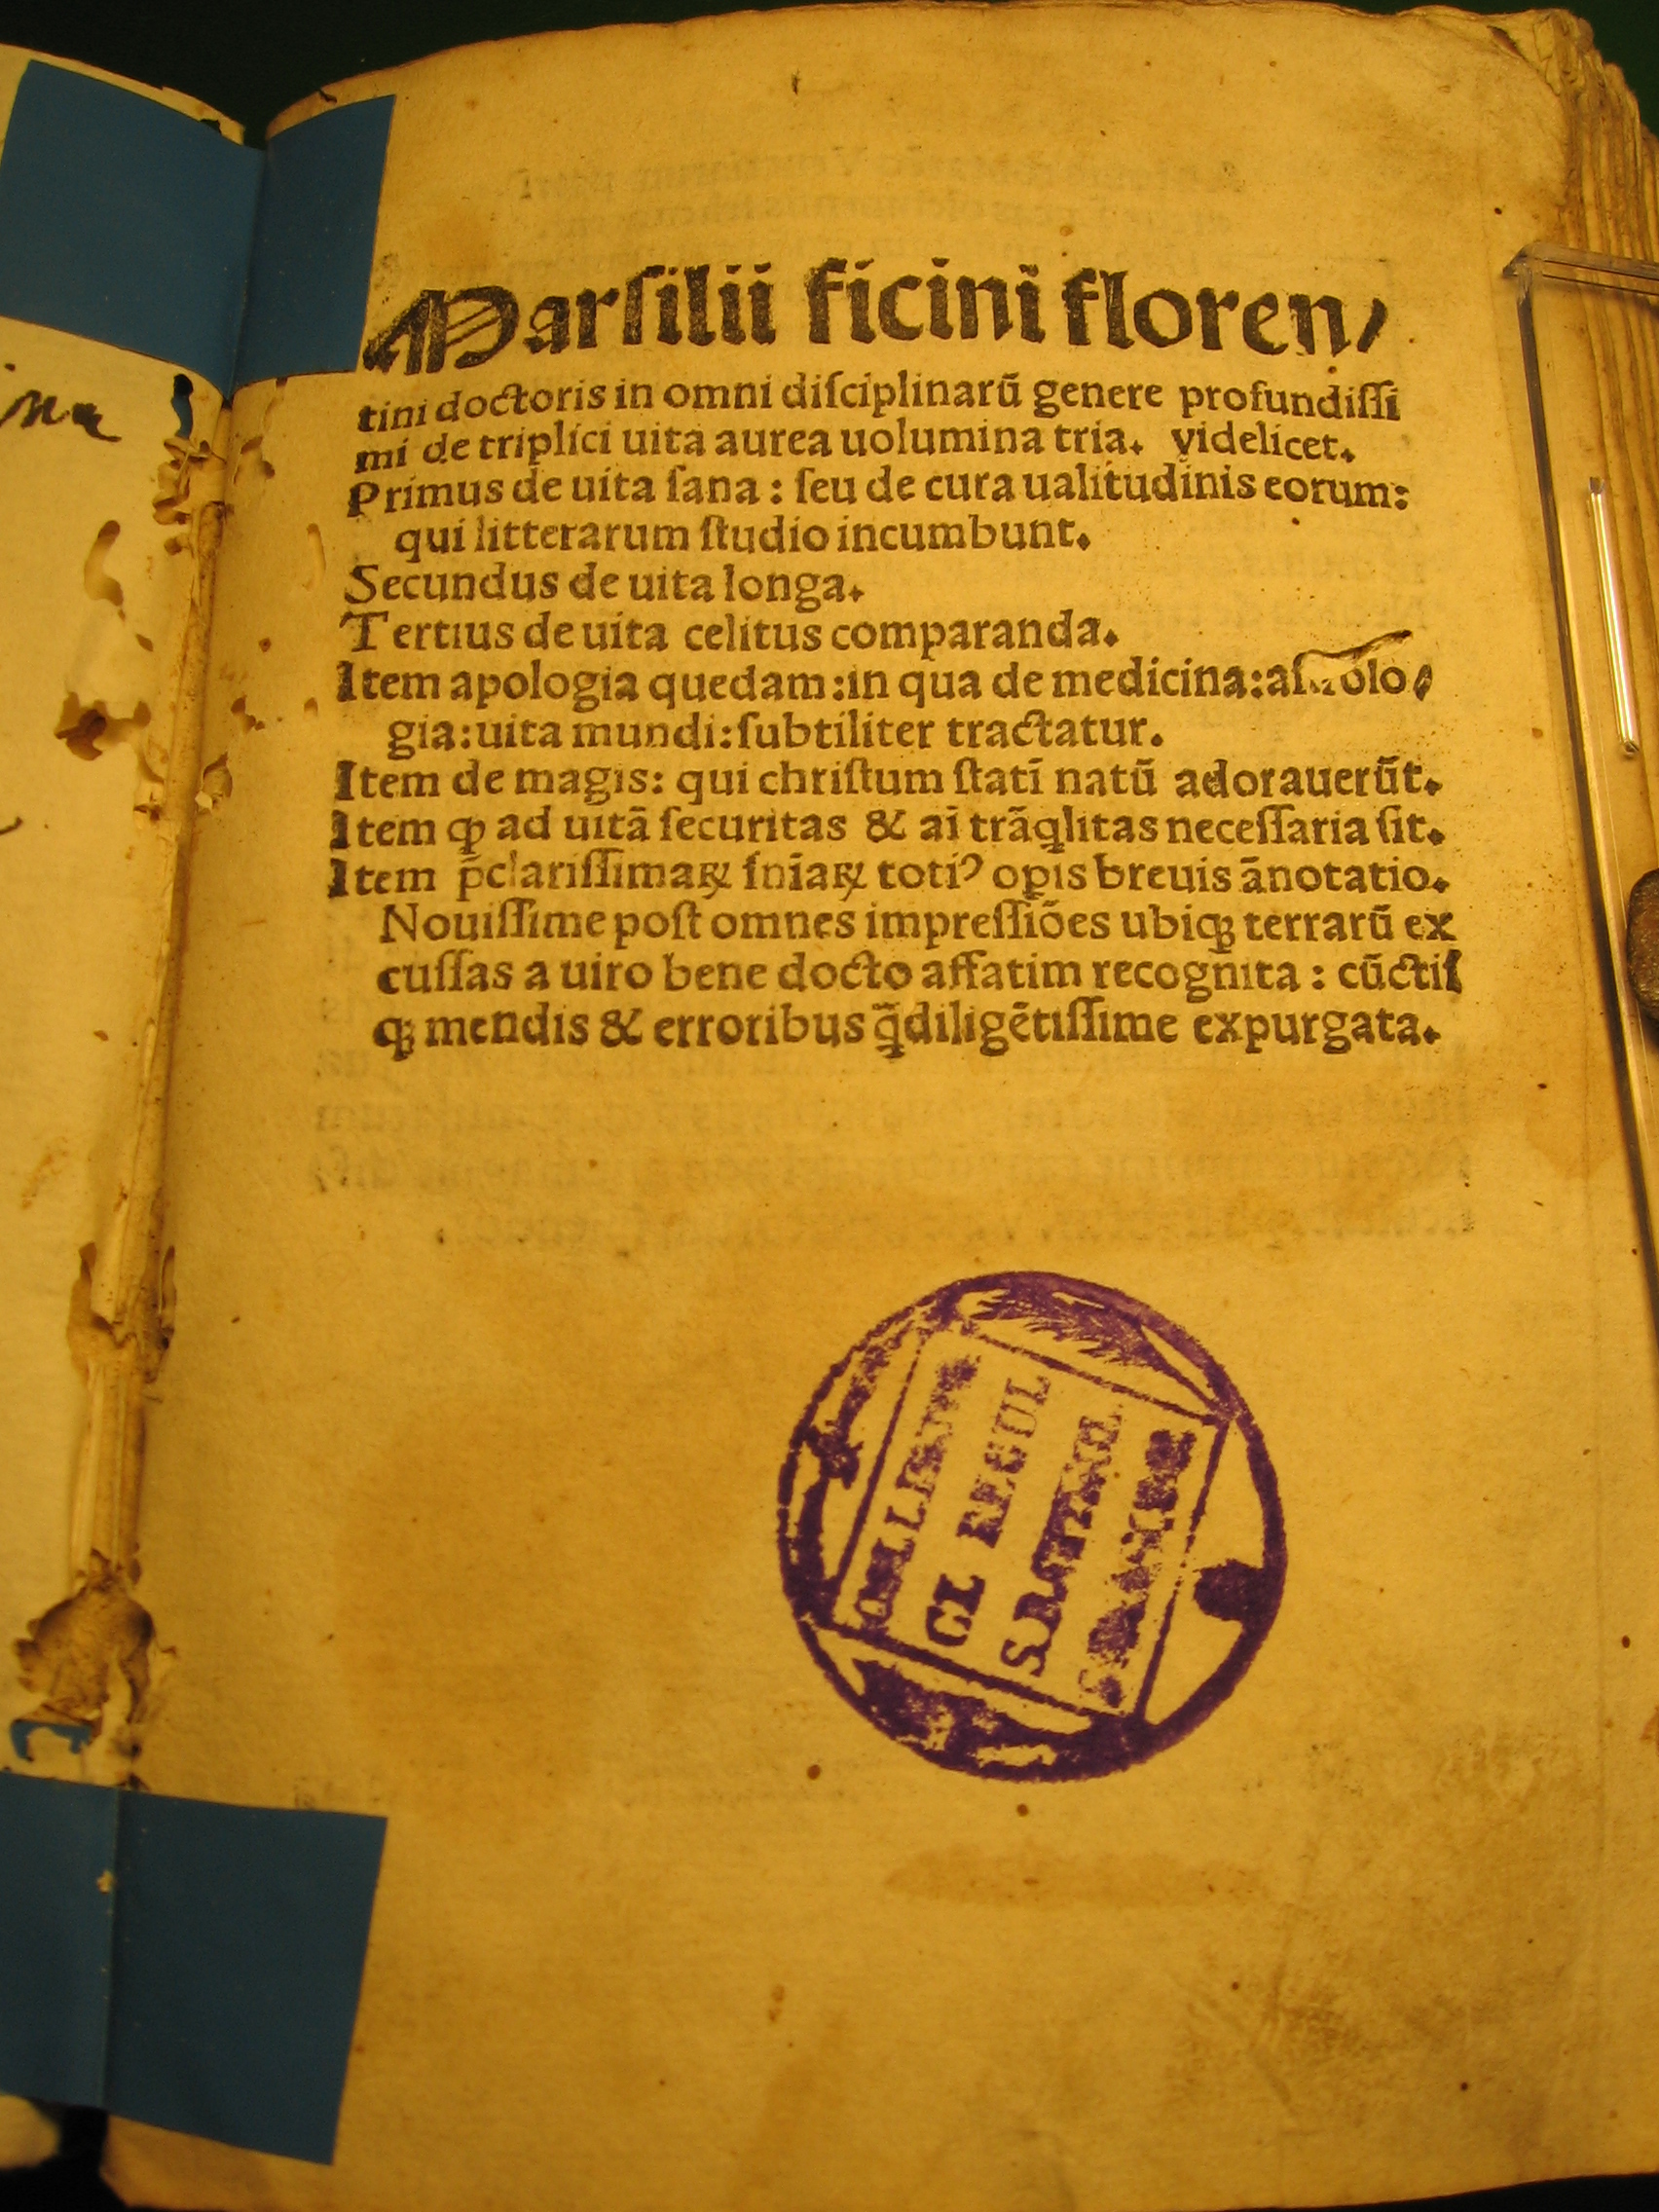 Marſilii ficini floren/
tini doctoris in omni diſciplinarū genere profundiſſi
mi de triplici uita aurea uolumina tria. videlicet.
Primus de uita ſana : ſeu de cura ualitudinis eorum:
qui litterarum ſtudio incumbunt.
Secundus de uita longa.
Tertius de uita celitus comparanda.
Item apologia quedam:in qua de medicina:aſtrolo/
gia:uita mundi:ſubtiliter tractatur.
Item de magis: qui chriſtum ſtatī natū adorauerūt.
Item ꝙ ad uitā ſecuritas & aī trāq̄litas neceſſaria ſit.
Item p̄clariſſimaꝝ ſnīaꝝ totiꝰ oꝑis breuis ānotatio.
Nouiſſime poſt omnes impreſſiōes ubiqꝫ terrarū ex
cuſſas a uiro bene docto affatim recognita : cūctiſ
qꝫ mendis & erroribus q̄diligētiſſime expurgata.
CL REGUL